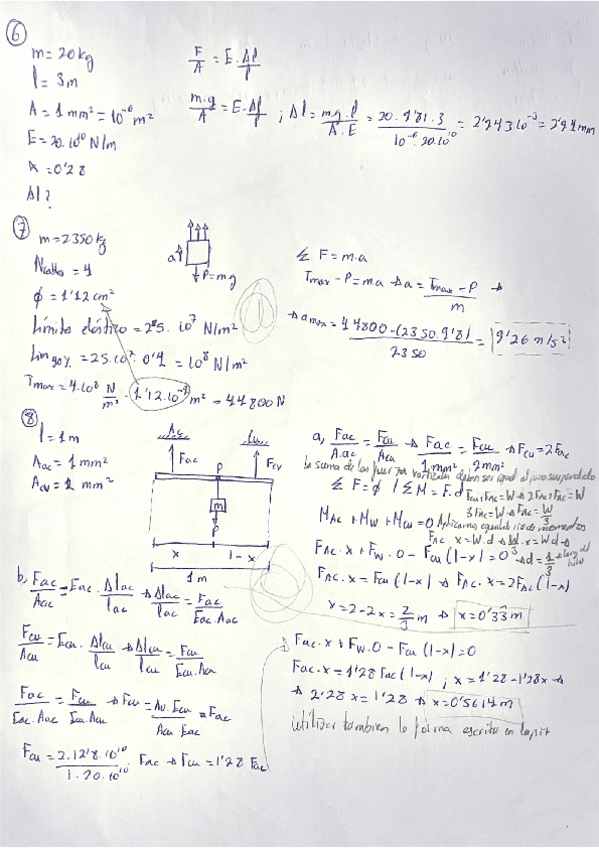 ⑥
m = 20 kg
l = 3 m
A = 1 mm² = 10⁻⁶ m²
E = 20·10¹⁰ N/m
Δl?
F/A = E·Δl/l
m·g/A = E·Δl/l ; Δl = m·g·l/A·E = 20·9'81·3/10⁻⁶·20·10¹⁰ = 2'943·10⁻³ = 2'94 mm
⑦
m = 2350 kg
= 4
ϕ = 1'12 cm²
Límite elástico = 25·10⁷ N/m²
= 25·10⁷·0'4 = 10⁸ N/m²
Tmax = 4·10⁸ N/m² · 1'12·10⁻⁴ m² = 44800 N
a
P = mg
Σ F = m·a
Tmax - P = m·a → a = Tmax - P/m →
→ amax = 44800 - (2350·9'81)/2350 = 9'26 m/s²
⑧
l = 1 m
Aac = 1 mm²
Ac
Fac
Fcu
P
m
P
x
1 - x
1 m
a, Fac/Aac = Fcu/Acu → Fac/1mm² = Fcu/2mm² → Fcu = 2Fac
la suma de las fuerzas verticales deben ser igual al peso suspendido
Σ F = ϕ / Σ M = F·d Fcu + Fac = W → 2Fac + Fac = W
3Fac = W → Fac = W/3
MAc + MW + MCu = 0 Aplicamos equilibrio de momentos
FAc·x + FW·0 - Fcu (1-x) = 0
FAc·x = Fcu (1-x) → FAc·x = 2FAc (1-x)
x = 2 - 2x = 2/3 m → x = 0'33 m
b, Fac/Aac = Eac·Δlac/lac → Δlac/lac = Fac/Eac·Aac
Fcu/Acu = Ecu·Δlcu/lcu → Δlcu/lcu = Fcu/Ecu·Acu
Fac/Eac·Aac = Fcu/Ecu·Acu
Fcu = 2·12'8·10¹⁰/1·20·10¹⁰ · FAc → Fcu = 1'28 Fac
FAc·x + FW·0 - Fcu (1-x) = 0
Fac·x = 1'28 Fac (1-x) ; x = 1'28 - 1'28x →
→ 2'28x = 1'28 → x = 0'5614 m
utilizar tambien la forma escrita en lapiz